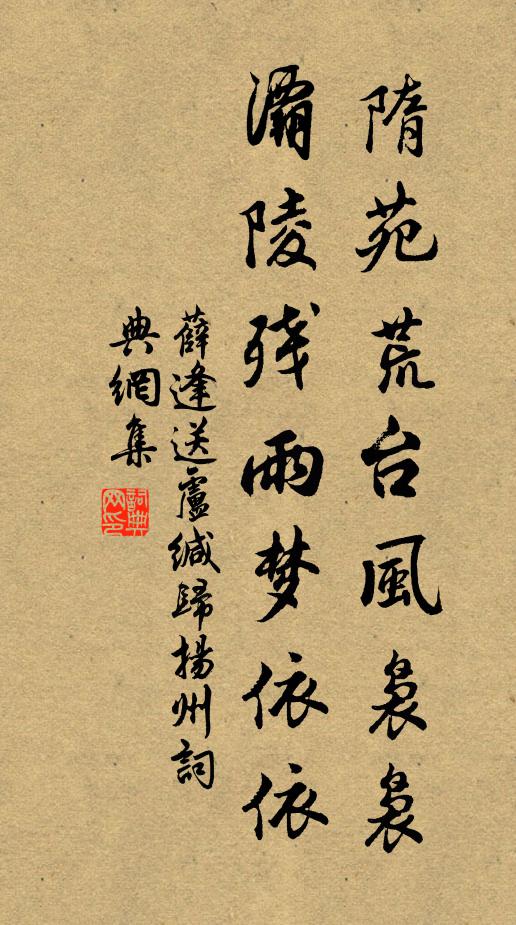 隋苑荒台風裊裊
灞陵残雨梦依依
薛逢送盧緘歸揚州詞
典網集
詞典
网印